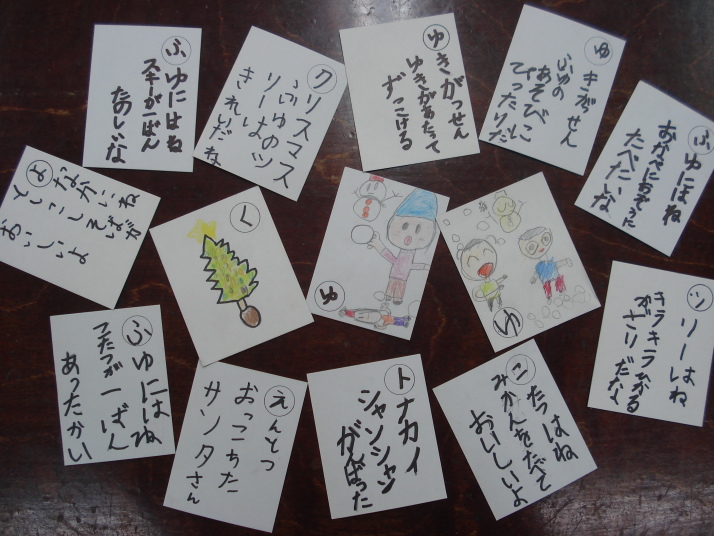 ふゆにはね
スキーが一ばん
たのしいな
クリスマス
ふゆのツ
リーは
きれいだね
ゆきがっせん
ゆきがあたって
ずっこける
ゆきがせん
ふゆの
あそびに
ぴったりだ
ふゆにはね
おぞうに
たべたいな
よなかにね
としこしそばが
おいしいよ
く
ゆ
ゆ
ツリーはね
キラキラひかる
かざりだな
ふゆにはね
こたつが一ばん
あったかい
えんとつ
おっこちた
サンタさん
トナカイ
シャンシャン
がんばった
こたつはね
みかんをたべて
おいしいよ